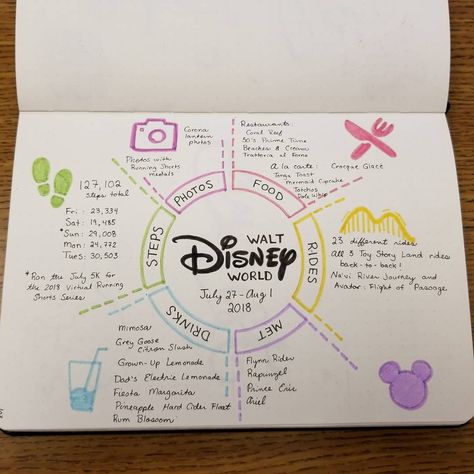 WALT
DISNEY
WORLD
July 27-Aug 1
2018
PHOTOS
Corona
lantern
photos
Photos with
Running Shorts
medals
FOOD
Restaurants:
Coral Reef
50's Prime Time
Beaches & Cream
Trattoria al Forno
A la carte: Croque Glacé
Tonga Toast
mermaid Cupcake
Totchos
Dole Whip
RIDES
23 different rides
All 3 Toy Story Land rides
back-to-back!
Na'vi River Journey and
Avatar: Flight of Passage
MET
Flynn Rider
Rapunzel
Prince Eric
Ariel
DRINKS
mimosa
Grey Goose
Citron Slush
Grown-Up Lemonade
Dad's Electric Lemonade
Fiesta Margarita
Pineapple Hard Cider Float
Rum Blossom
STEPS
127,102
Steps total
Fri: 23,334
Sat: 19,485
*Sun: 29,008
Mon: 24,772
Tues: 30,503
*Ran the July 5K for
the 2018 Virtual Running
Shorts Series